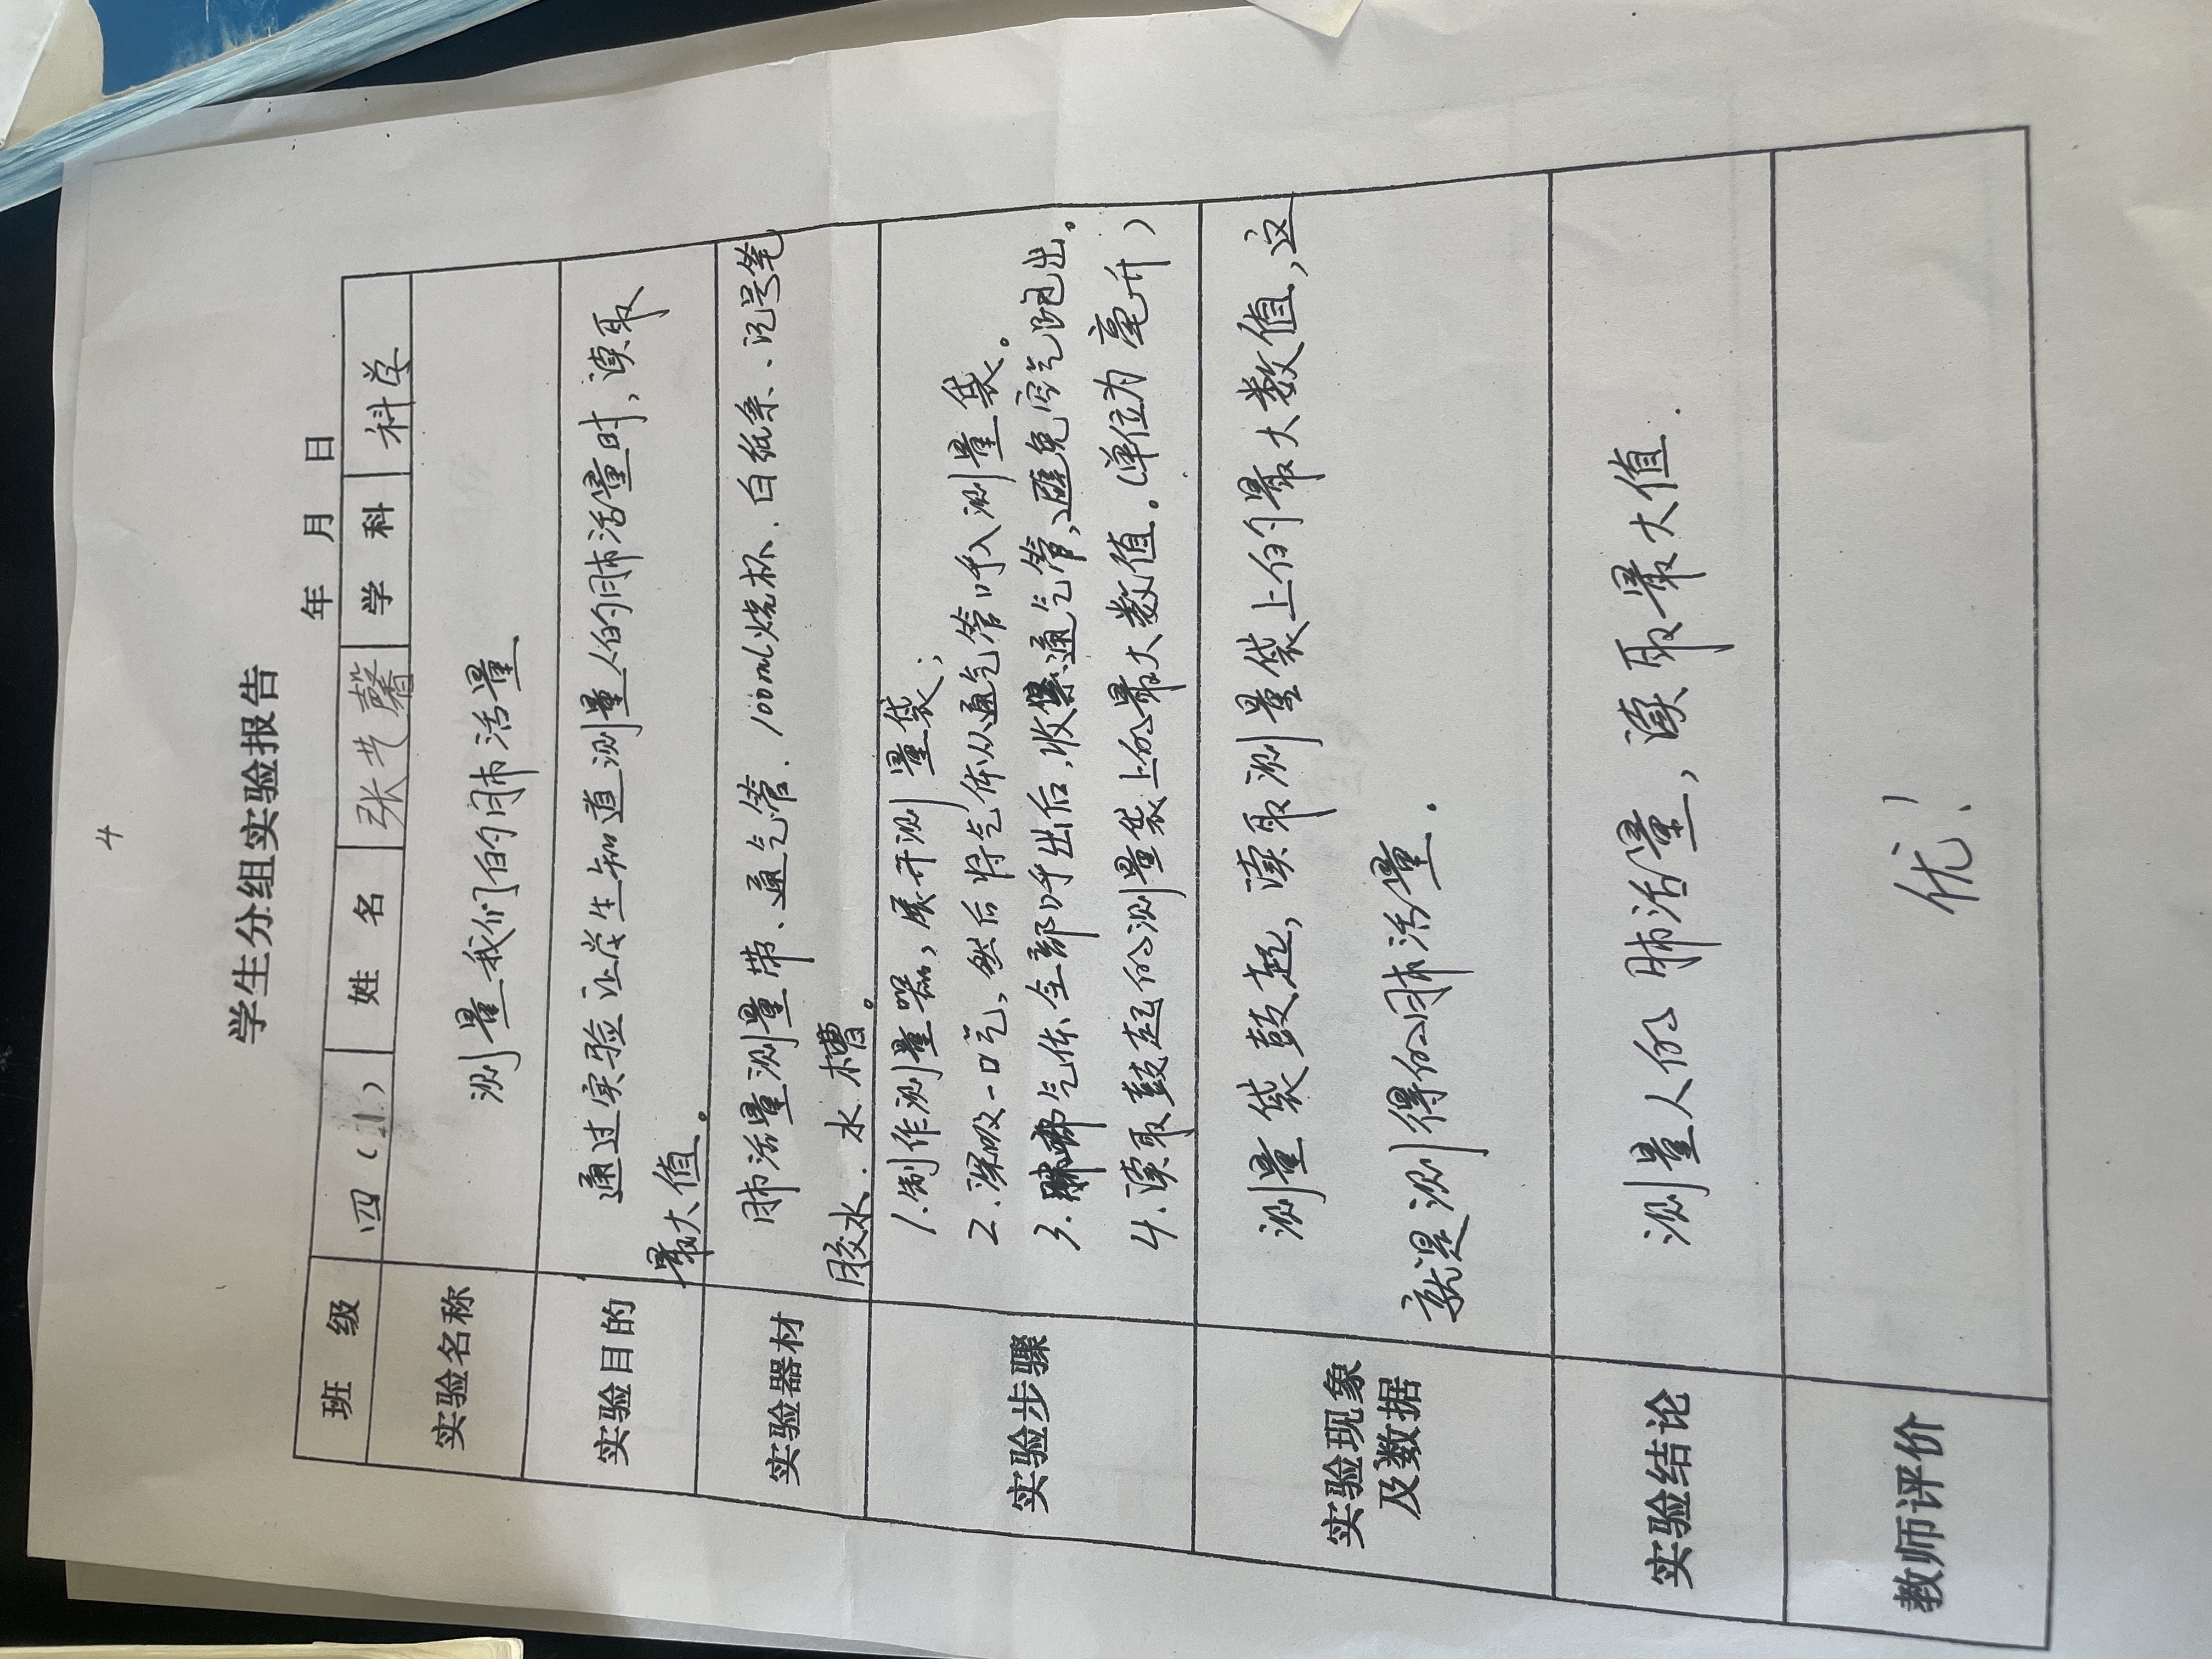 4
学生分组实验报告
年 月 日
班 级 四（1） 姓 名 张 馨 学 科 科学
实验名称 测量我们的肺活量
实验目的 通过实验让学生知道测量人的肺活量时，读取
最大值。
实验器材 肺活量测量带、通气管、100ml烧杯、白纸条、记号笔
胶水、水槽。
实验步骤 1.制作测量器，展开测量袋；
2.深吸一口气，然后将气体从通气管呼入测量袋。
3.气体全部呼出后，收紧通气管，避免空气跑出。
4.读取鼓起的测量袋上的最大数值。（单位为毫升）
实验现象
及数据
测量袋鼓起，读取测量袋上的最大数值，这
就是测得的肺活量．
实验结论 测量人的肺活量，读取最大值．
教师评价 优！